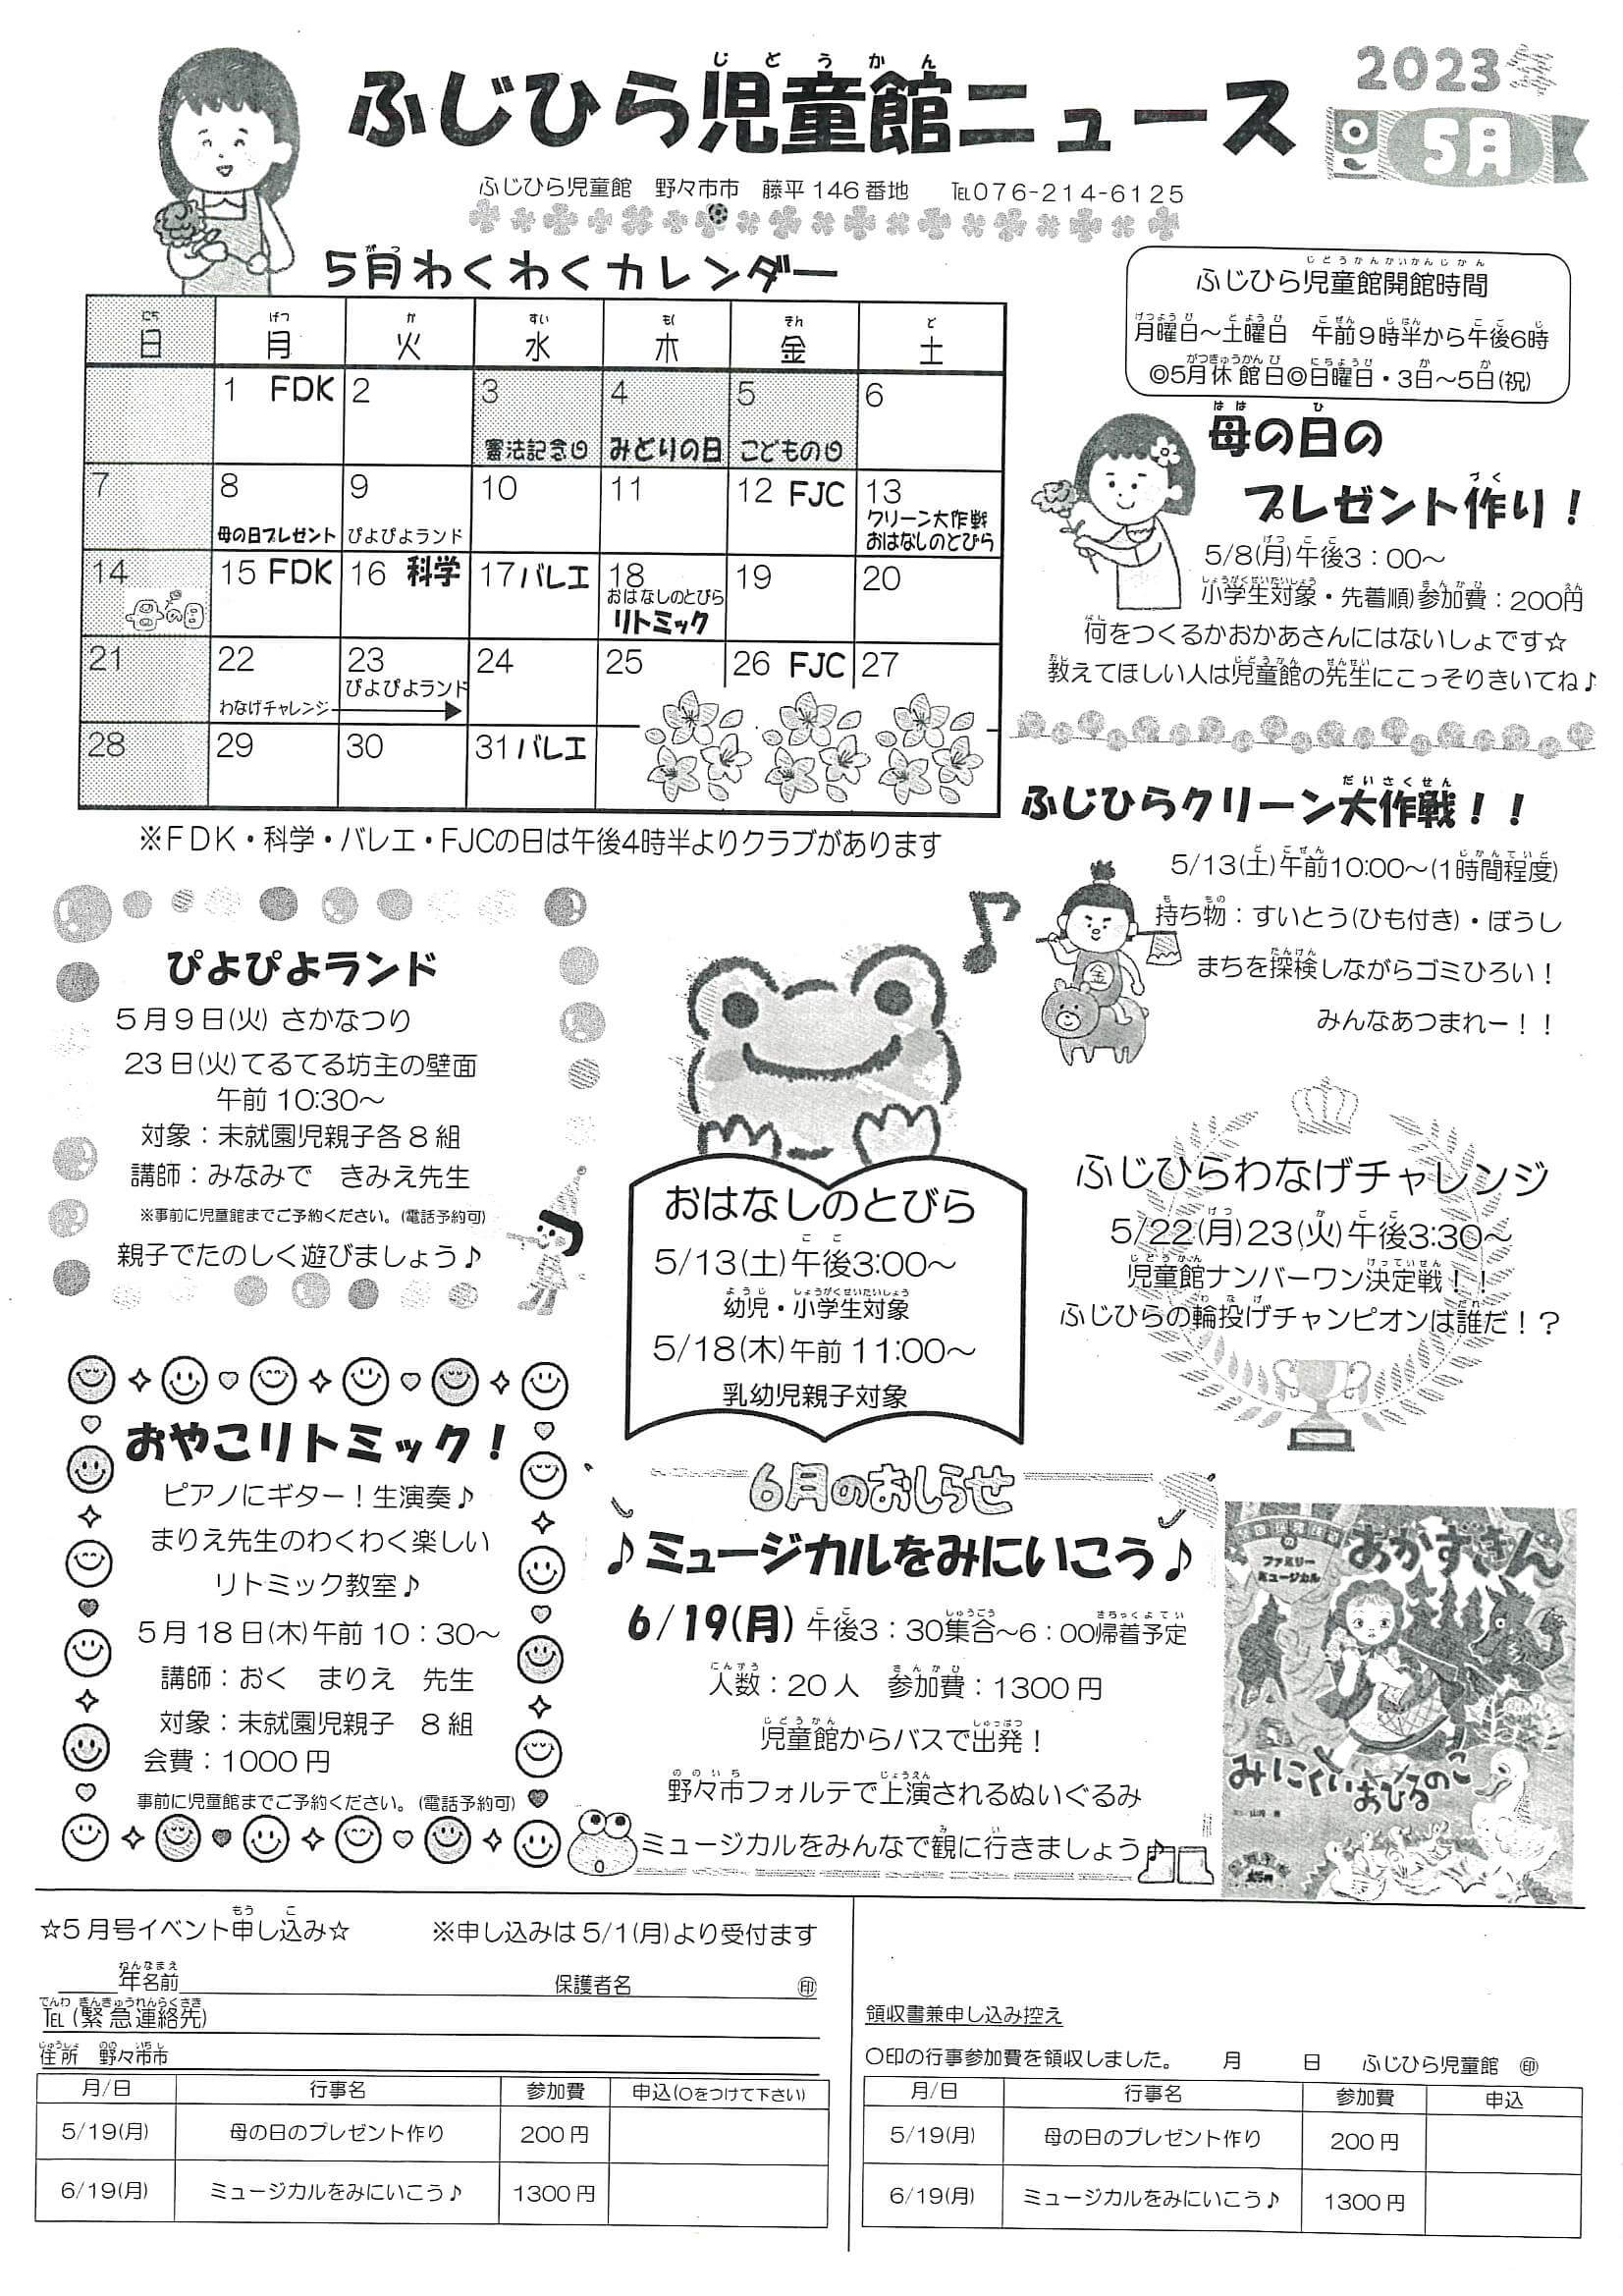 2023年
5月
ふじひら児童館ニュース
ふじひら児童館　野々市市　藤平146番地　℡076-214-6125
5月わくわくカレンダー
日 月 火 水 木 金 土
1 FDK 2 3 憲法記念日 4 みどりの日 5 こどもの日 6
7 8 母の日プレゼント 9 ぴよぴよランド 10 11 12 FJC 13 クリーン大作戦 おはなしのとびら
14 母の日 15 FDK 16 科学 17 バレエ 18 おはなしのとびら リトミック 19 20
21 22 わなげチャレンジ 23 ぴよぴよランド 24 25 26 FJC 27
28 29 30 31 バレエ
※FDK・科学・バレエ・FJCの日は午後4時半よりクラブがあります
ふじひら児童館開館時間
月曜日～土曜日　午前9時半から午後6時
◎5月休館日◎日曜日・3日～5日(祝)
母の日の
プレゼント作り！
5/8(月)午後3：00～
小学生対象・先着順)参加費：200円
何をつくるかおかあさんにはないしょです☆
教えてほしい人は児童館の先生にこっそりきいてね♪
ふじひらクリーン大作戦！！
5/13(土)午前10:00～(1時間程度)
持ち物：すいとう(ひも付き)・ぼうし
まちを探検しながらゴミひろい！
みんなあつまれー！！
金
ぴよぴよランド
5月9日(火) さかなつり
23日(火)てるてる坊主の壁面
午前 10:30～
対象：未就園児親子各8組
講師：みなみで　きみえ先生
※事前に児童館までご予約ください。(電話予約可)
親子でたのしく遊びましょう♪
おはなしのとびら
5/13(土)午後3:00～
幼児・小学生対象
5/18(木)午前 11:00～
乳幼児親子対象
ふじひらわなげチャレンジ
5/22(月)23(火)午後3:30～
児童館ナンバーワン決定戦！！
ふじひらの輪投げチャンピオンは誰だ！？
おやこリトミック！
ピアノにギター！生演奏♪
まりえ先生のわくわく楽しい
リトミック教室♪
5月18日(木)午前10：30～
講師：おく　まりえ　先生
対象：未就園児親子　8組
会費：1000円
事前に児童館までご予約ください。(電話予約可)
6月のおしらせ
♪ミュージカルをみにいこう♪
6/19(月) 午後3：30集合～6：00帰着予定
人数：20人　参加費：1300円
児童館からバスで出発！
野々市フォルテで上演されるぬいぐるみ
ミュージカルをみんなで観に行きましょう♪
ファミリー
ミュージカル
あかずきん
みにくいあひるのこ
☆5月号イベント申し込み☆　※申し込みは5/1(月)より受付ます
年名前　保護者名　㊞
℡(緊急連絡先)
住所　野々市市
月/日 行事名 参加費 申込(○をつけて下さい)
5/19(月) 母の日のプレゼント作り 200円
6/19(月) ミュージカルをみにいこう♪ 1300円
領収書兼申し込み控え
○印の行事参加費を領収しました。　月　日　ふじひら児童館　㊞
月/日 行事名 参加費 申込
5/19(月) 母の日のプレゼント作り 200円
6/19(月) ミュージカルをみにいこう♪ 1300円